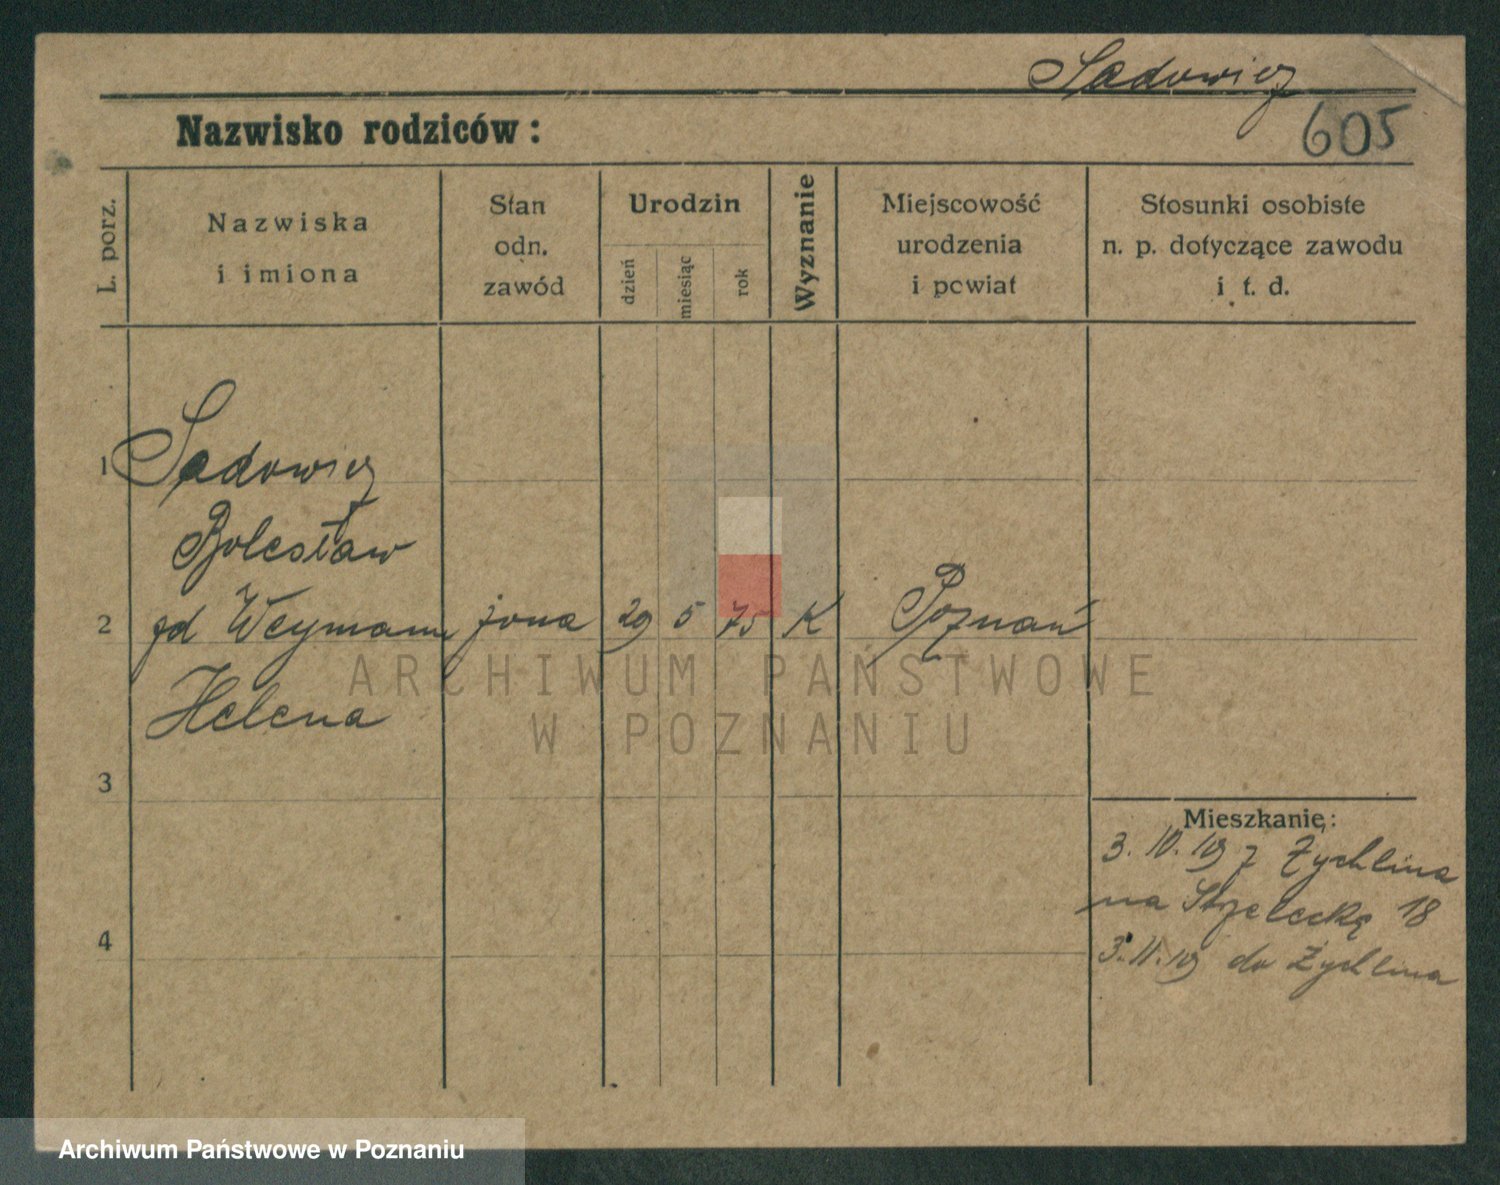 Sadowicz
605
Nazwisko rodziców:
L. porz.
Nazwiska
i imiona
Stan
odn.
zawód
Urodzin
dzień
miesiąc
rok
Wyznanie
Miejscowość
urodzenia
i powiat
Stosunki osobiste
n. p. dotyczące zawodu
i t. d.
1 Sadowicz
Bolesław
2 zd Weymann żona 29 5 75 K Poznań
Helena
3
4
Mieszkanie:
3. 10. 19 z Żychlina
na Strzelecką 18
3. 11. 19 do Żychlina
ARCHIWUM PAŃSTWOWE
W POZNANIU
Archiwum Państwowe w Poznaniu